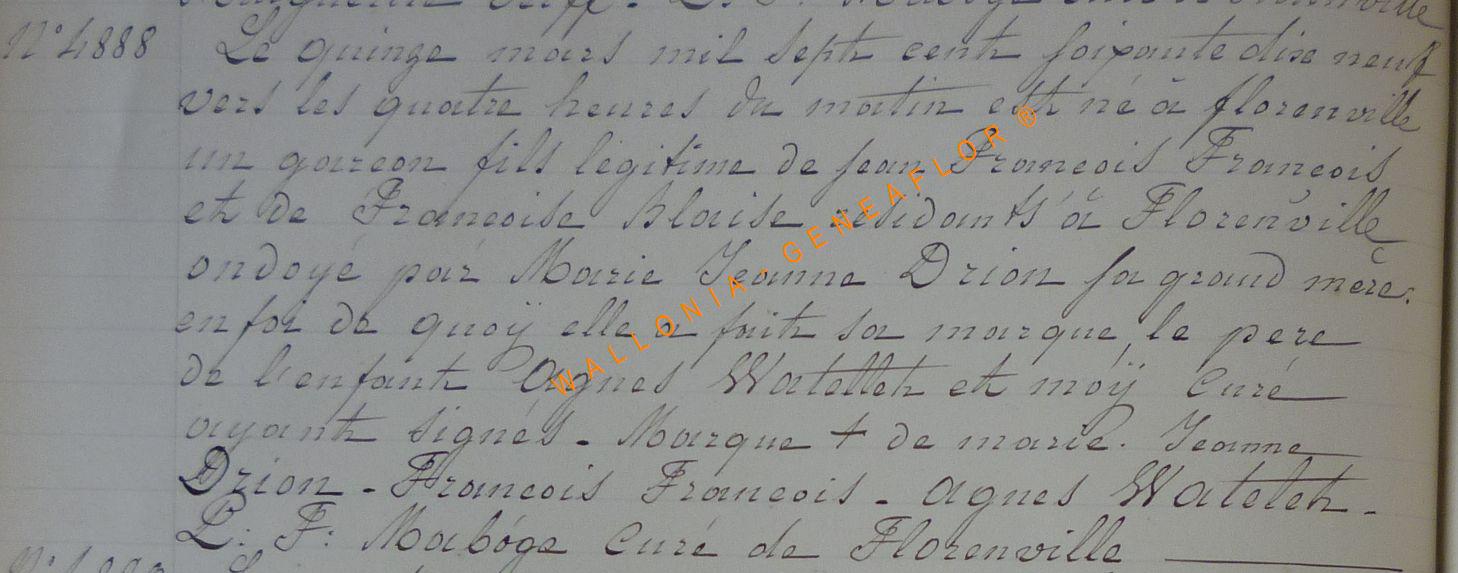 Curé de Florenville
N° 4888 Le quinze mars mil sept cent soixante dix neuf
vers les quatre heures du matin est né à florenville
un garcon fils légitime de jean François François
et de Françoise Blaise résidants à Florenville
ondoyé par Marie Jeanne Drion sa grand mère.
en foi de quoÿ elle a fait sa marque, le pere
de l'enfant Agnes Watellet et moÿ Curé
ayant signés - Marque + de marie. Jeanne
Drion - François François - Agnes Watelet -
L: F: Mabóge Curé de Florenville
WALLONIA - GENEAFLOR ®